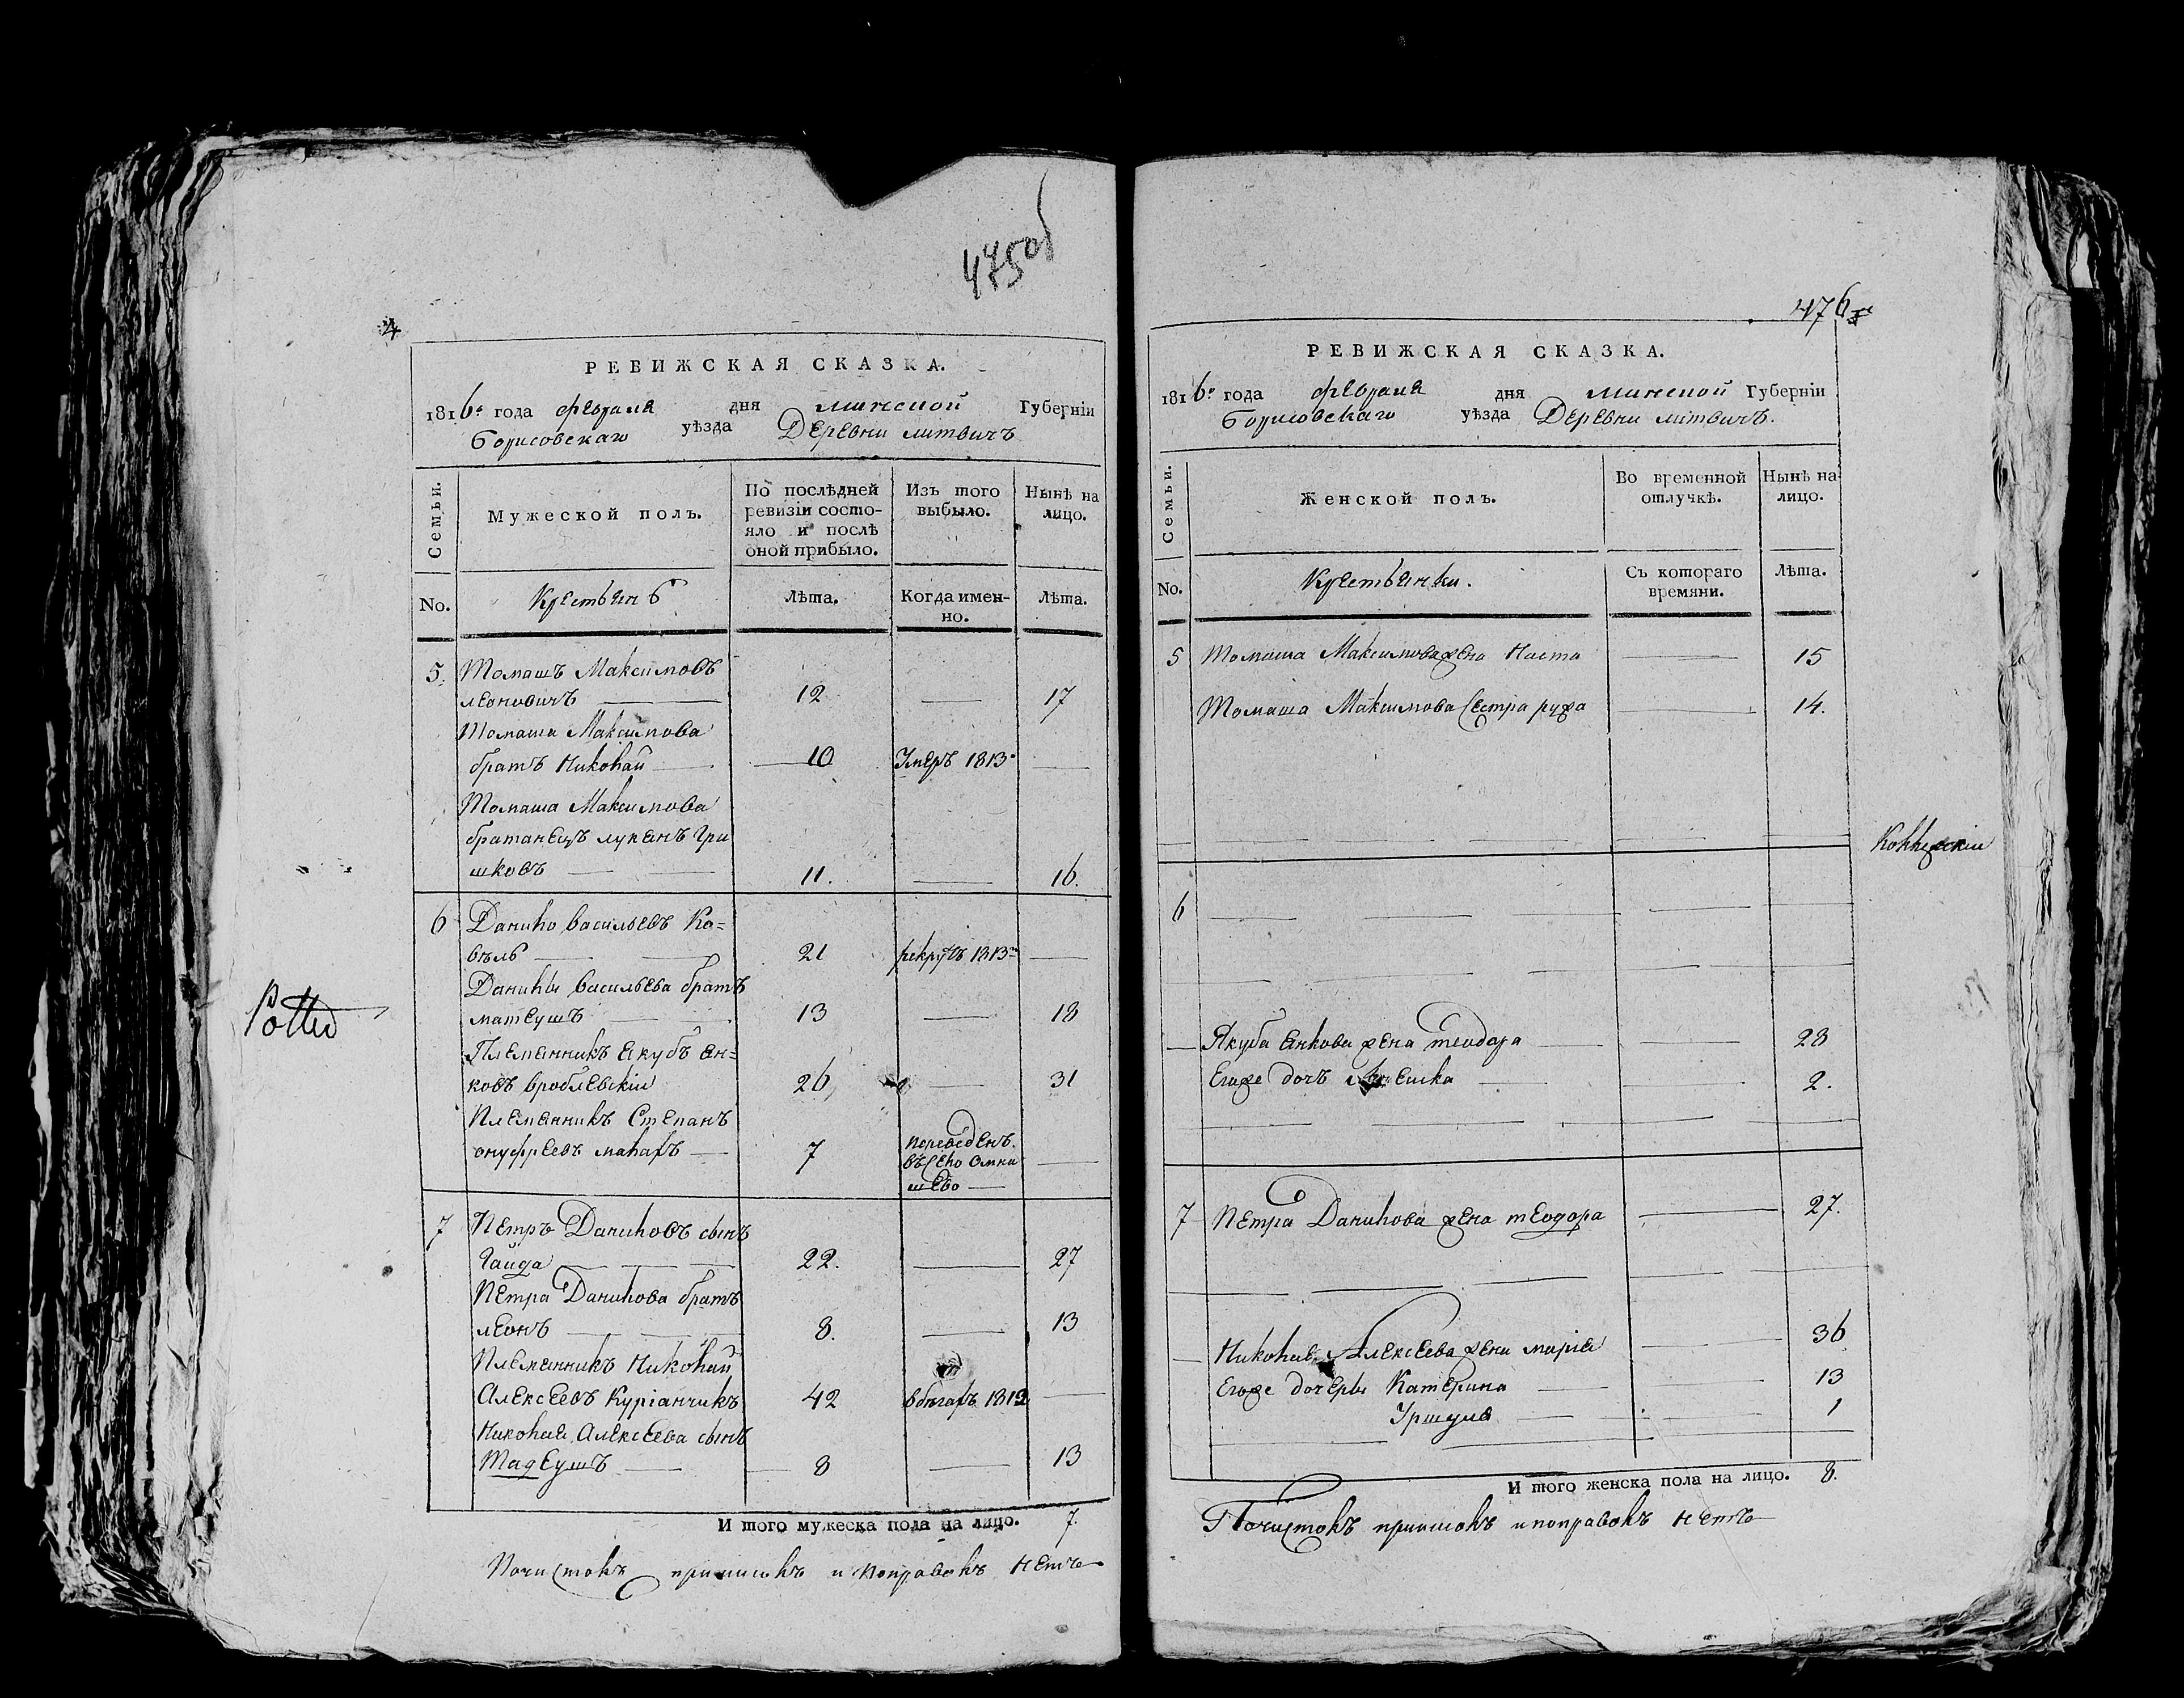 475об
4
РЕВИЖСКАЯ СКАЗКА.
1816го года февраля дня минской Губерніи
Борисовскаго уѣзда Деревни литвичъ
Семьи.
Мужеской полъ.
По послѣдней ревизіи состояло и послѣ оной прибыло.
Изъ того выбыло.
Нынѣ на лицо.
No.
Крестьянъ
Лѣта.
Когда именно.
Лѣта.
5. Томашъ Максимовъ
леоновичъ 12 17
Томаша Максимова
братъ Николай 10 Умеръ 1813го
Томаша Максимова
братанецъ лукянъ Гри
шковъ 11. 16.
6 Данило васильевъ Ко=
вѣль 21 рекрутъ 1813го
Данилы васильева братъ
матеушъ 13 18
Племянникъ якубъ ян=
ковъ вроблевскій 26 31
Племянникъ Степанъ
онуфреевъ макаръ 7 переведенъ
въ село Омни
шево
7 Петръ Даниловъ сынъ
Гайда 22. 27
Петра Данилова братъ
леонъ 8. 13
Племянникъ Николай
Алексеевъ Куріанчикъ 42 вбѣгахъ 1813
Николая Алексеева сынъ
Тадеушъ 8 13
И того мужеска пола на лицо. 7.
Почистокъ приписокъ и поправокъ нетъ
476
РЕВИЖСКАЯ СКАЗКА.
1816го года февраля дня минской Губерніи
Борисовскаго уѣзда Деревни литвичъ.
Семьи.
Женской полъ.
Во временной отлучкѣ.
Нынѣ на лицо.
No.
Крестьянки.
Съ котораго времяни.
Лѣта.
5 Томаша Максимова жена Наста 15
Томаша Максимова Сестра ружа 14.
6
Якуба янкова жена теодора 28
Егоже дочъ 2.
7 Петра Данилова жена теодора 27.
Николая Алексеева жена марія 36
Егоже дочеры Катерина 13
Уршуля 1
И того женска пола на лицо. 8.
Почистокъ приписокъ и поправокъ нетъ